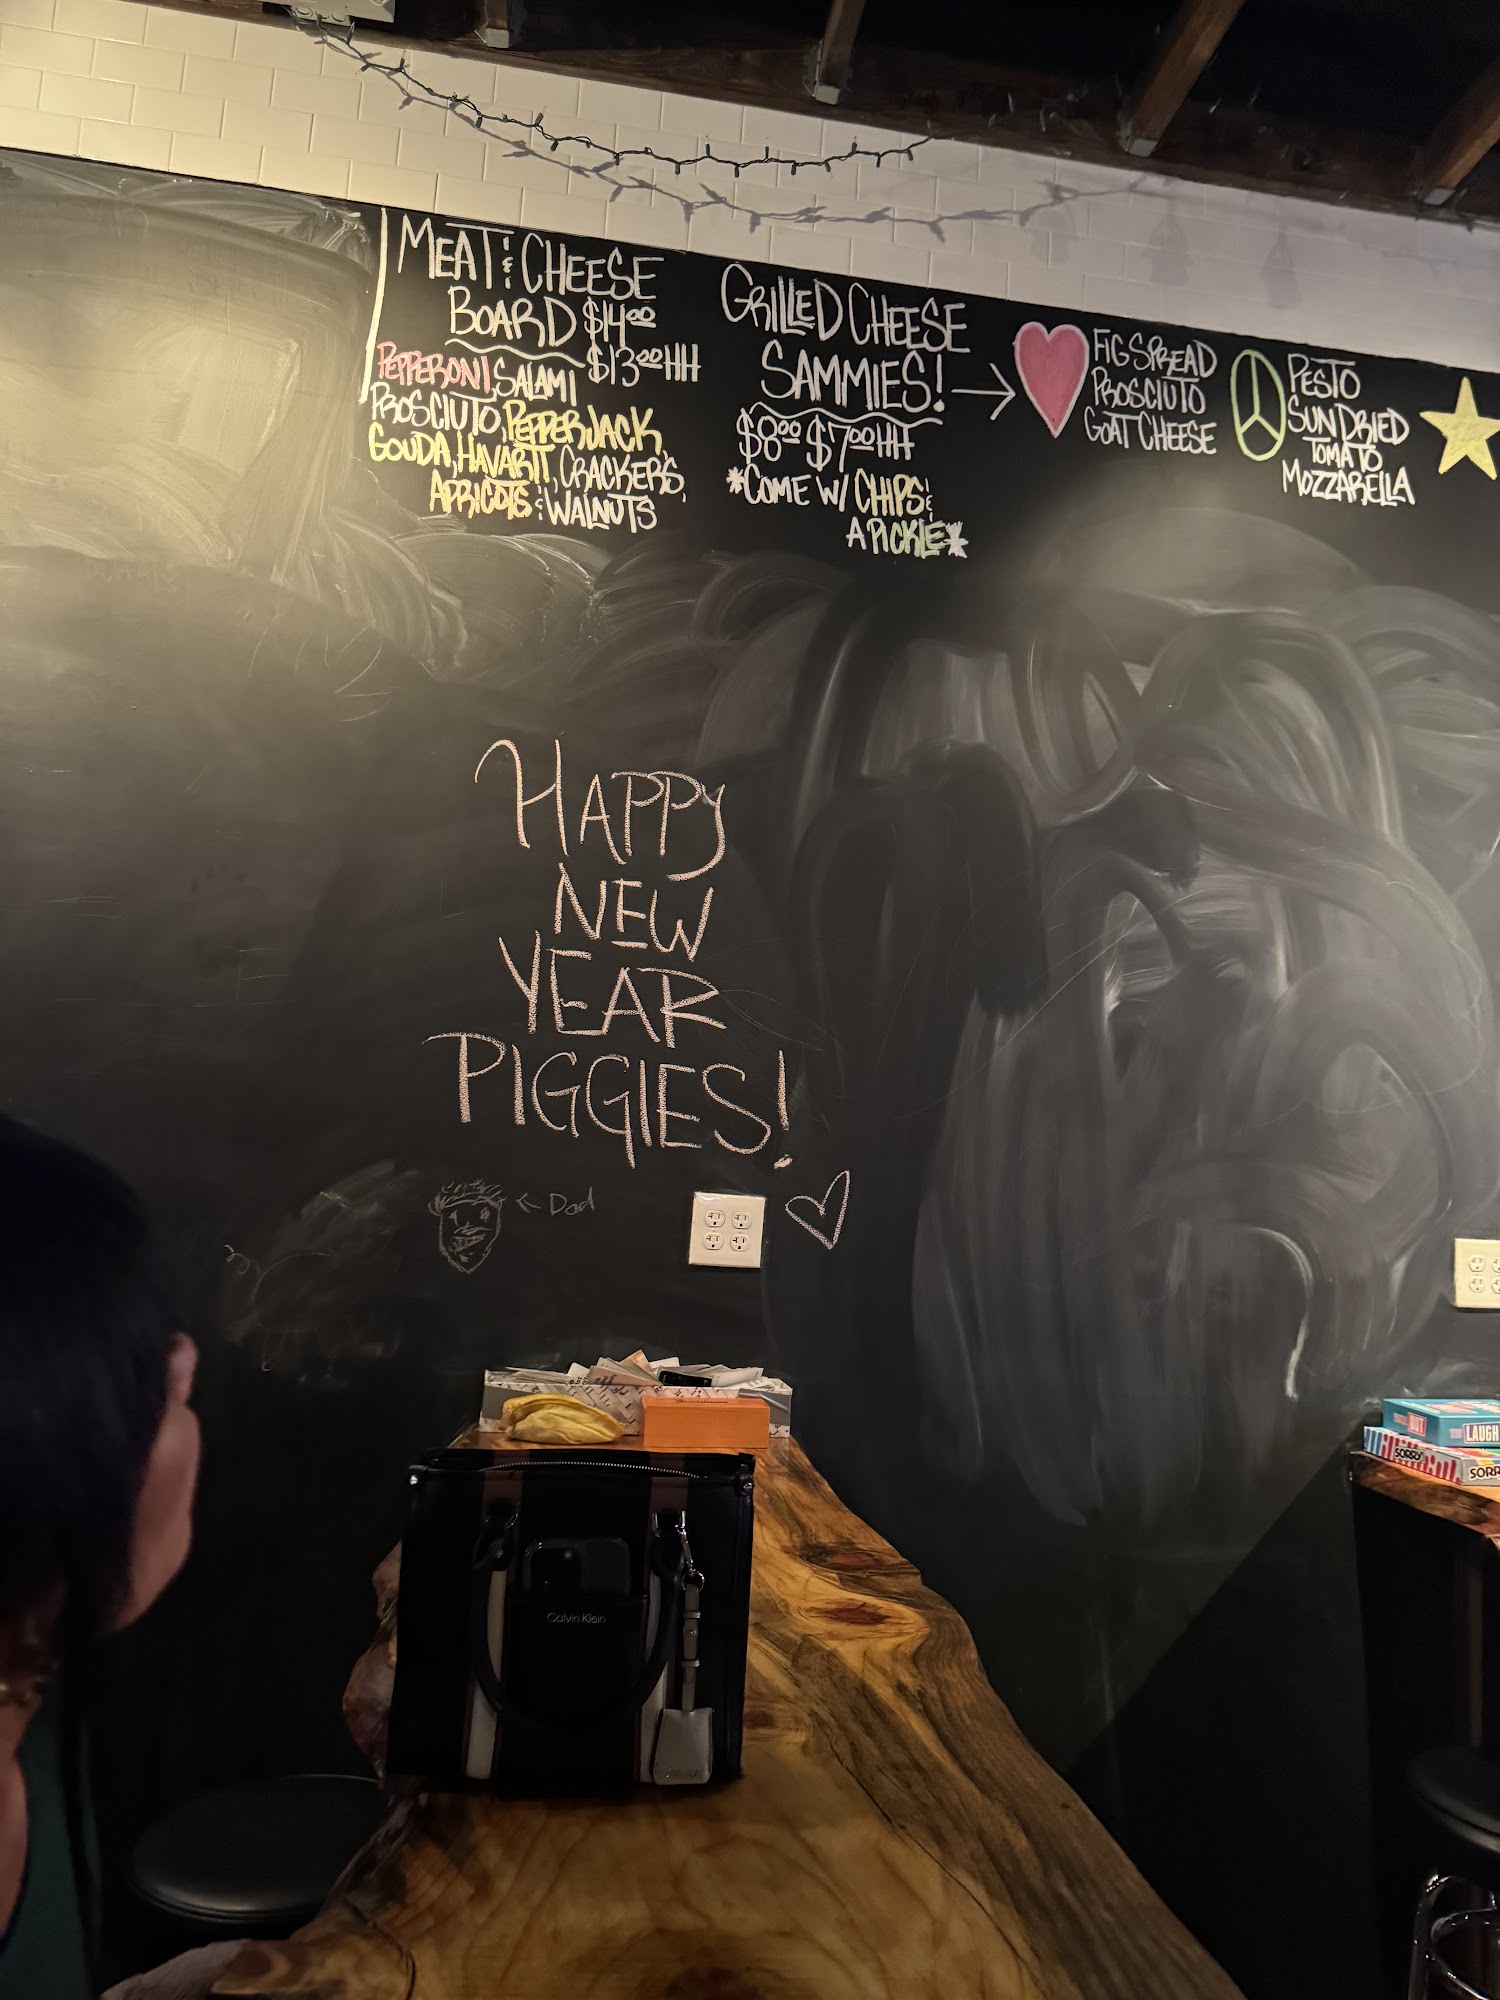 MEAT & CHEESE
BOARD $14.00
$13.00 HH
PEPPERONI, SALAMI
PROSCIUTO, PEPPERJACK,
GOUDA, HAVARTI, CRACKERS,
APRICOTS & WALNUTS
GRILLED CHEESE
SAMMIES!
$8.00 $7.00 HH
*COME W/ CHIPS &
A PICKLE*
FIG SPREAD
PROSCIUTO
GOAT CHEESE
PESTO
SUNDRIED
TOMATO
MOZZARELLA
HAPPY
NEW
YEAR
PIGGIES!
Dad
Calvin Klein
LAUGH
SORRY
SORR